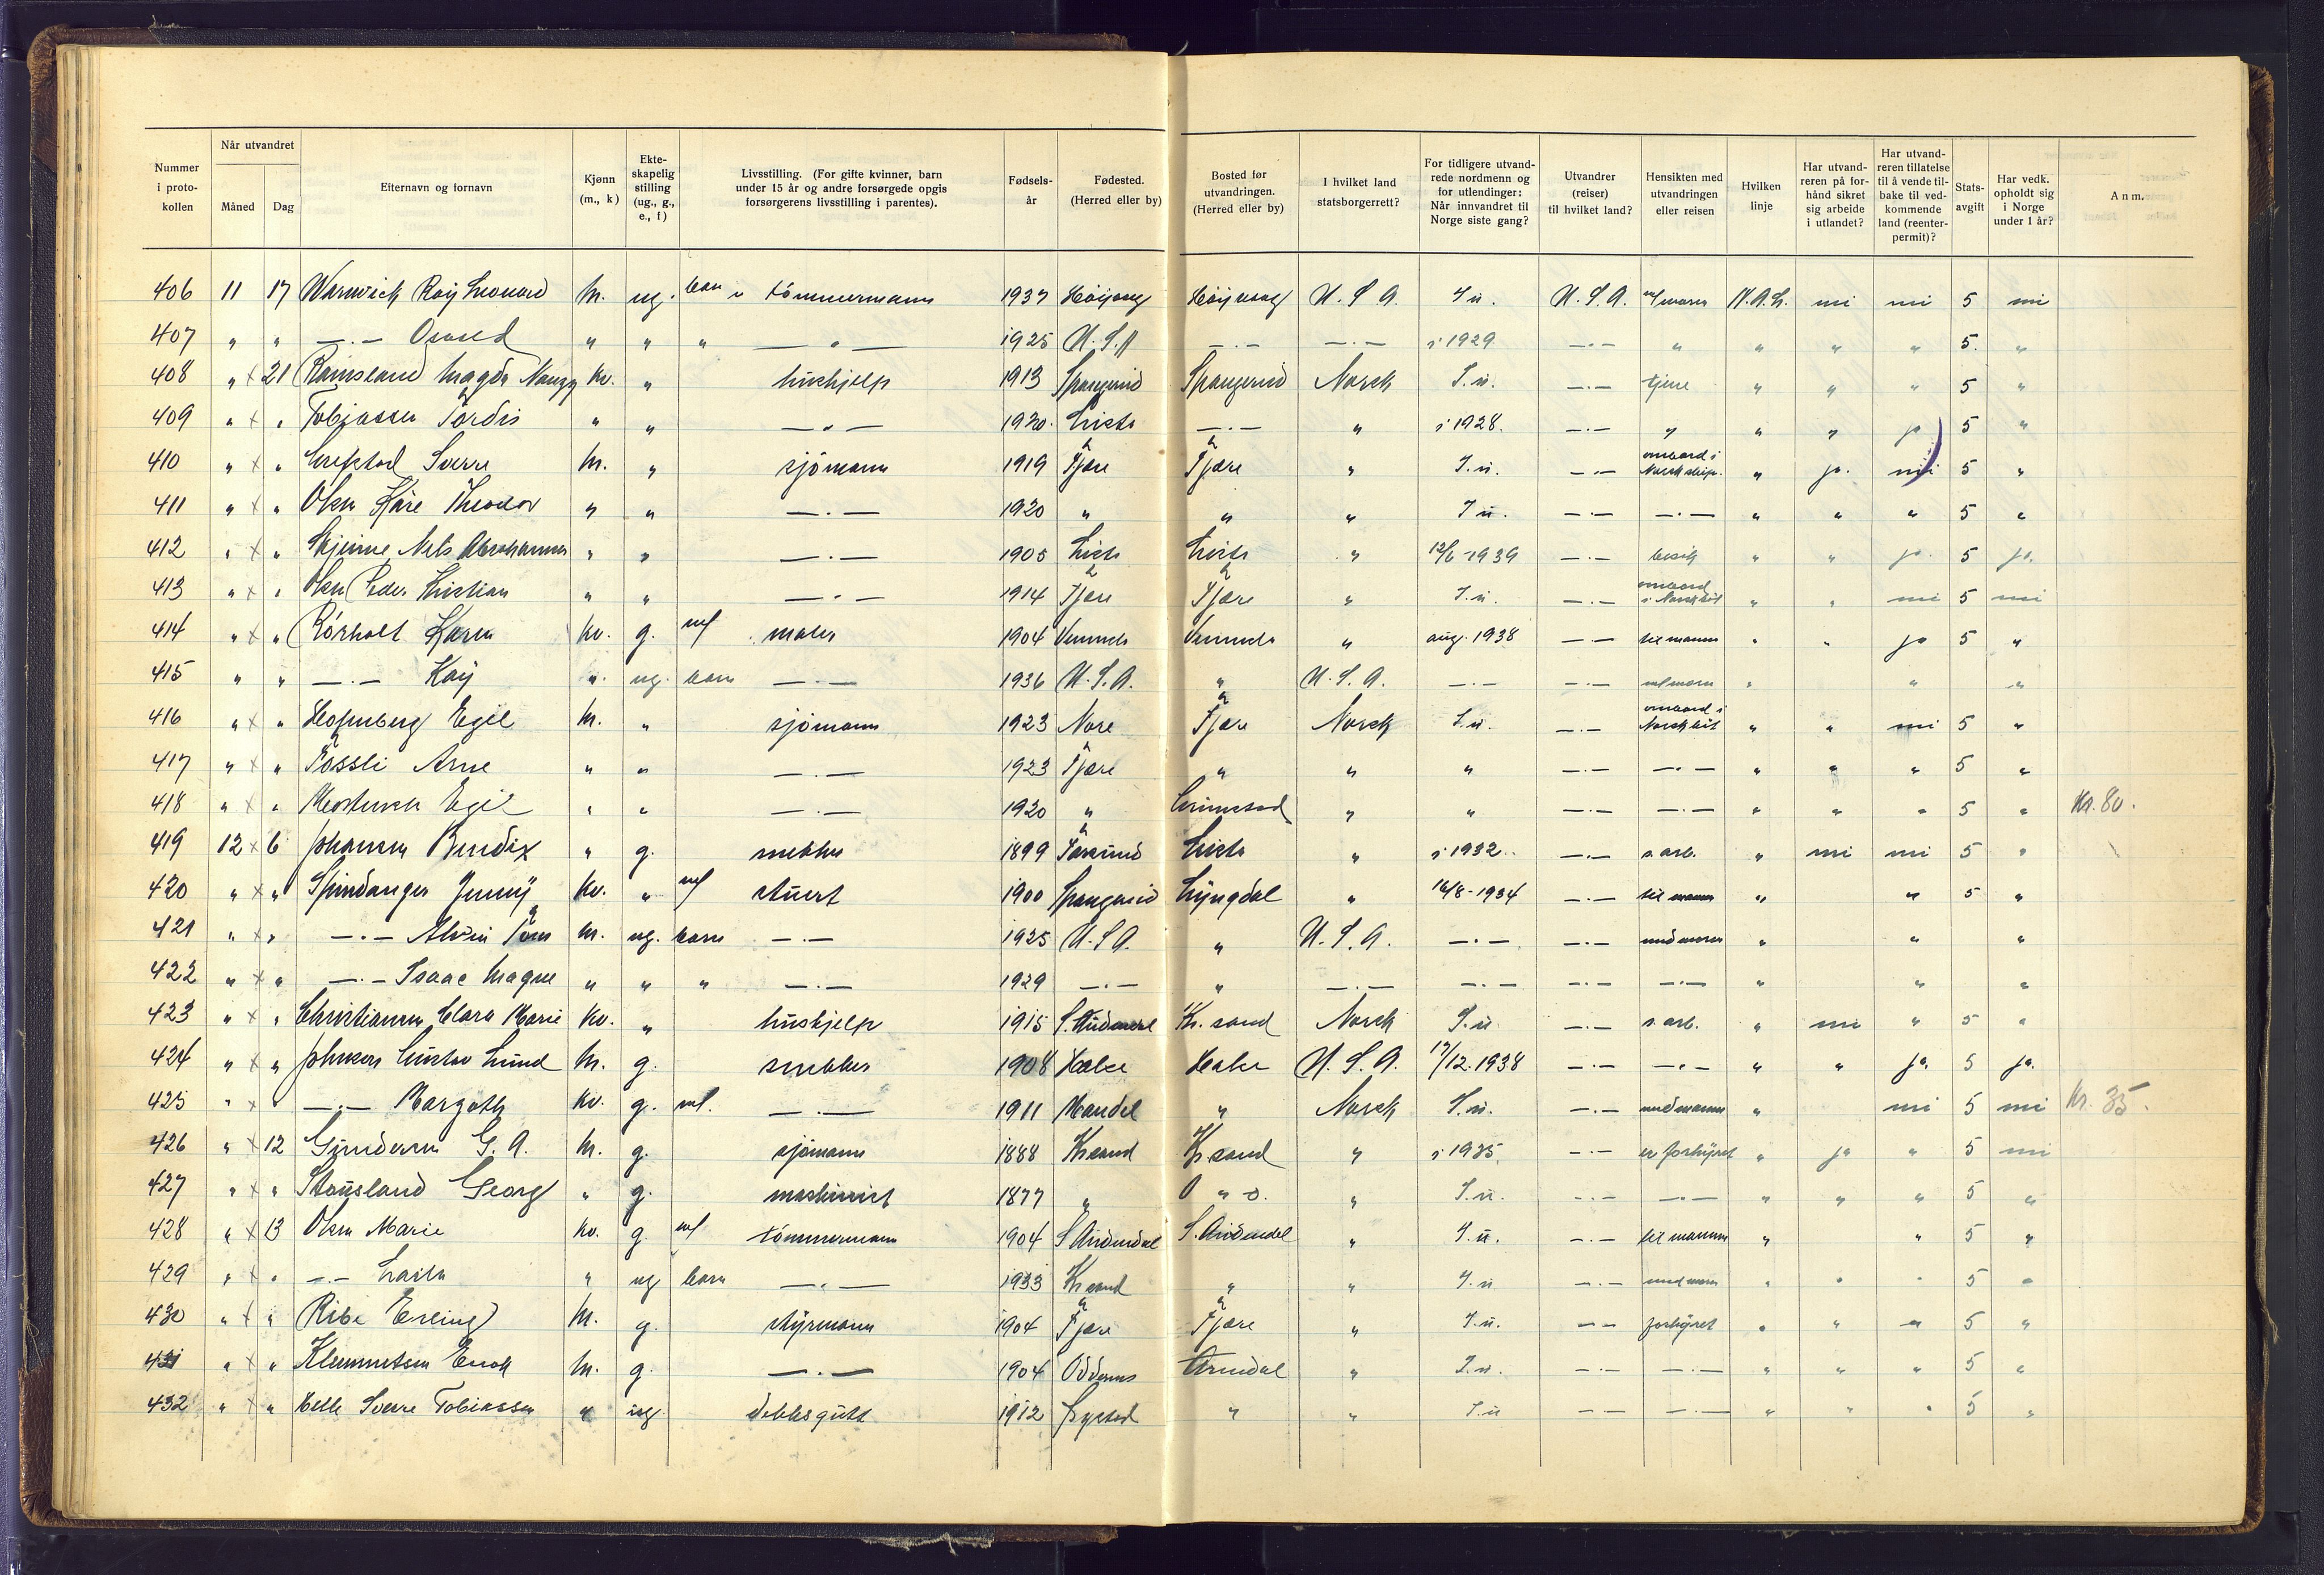 Nummer i protokollen | Når utvandret Måned | Dag | Efternavn og fornavn | Kjønn (m., k) | Ekteskapelig stilling (ug., g., e., f) | Livsstilling. (For gifte kvinner, barn under 15 år og andre forsørgede opgis forsørgerens livsstilling i parentes). | Fødselsår | Fødested. (Herred eller by) | Bosted før utvandringen. (Herred eller by) | I hvilket land statsborgerrett? | For tidligere utvandrede nordmenn og for utlendinger: Når innvandret til Norge siste gang? | Utvandrer (reiser) til hvilket land? | Hensikten med utvandringen eller reisen | Hvilken linje | Har utvandreren på forhånd sikret sig arbeide i utlandet? | Har utvandreren tillatelse til å vende tilbake til vedkommende land (reenterpermit)? | Statsavgift | Har vedk. opholdt sig i Norge under 1 år? | Anm.
406 11 17 Warwick Roy Leonard M. ug. barn tømmermann 1937 U.S.A. U.S.A. N.A.L. nei nei 5 nei
407 " " —.— " " " —"— 1925 U.S.A —.— —.— i 1929 —.— " " " " 5. "
408 " x 21 Ramsland Magda Kv. " hushjelp 1913 Spangereid Spangereid Norsk I.u. —.— tjene " " " 5 "
409 " x " Tobiassen Tordis " " —"— 1920. Lista —.— " i 1928. —.— " " " ja 5 "
410 " x " Sverre M. " sjømann 1919 Fjære Fjære " I.u. —.— ombord i Norsk skip. " ja. nei 5 "
411 " x " Olsen Kåre Theodor " " —.— 1920 " " " I u. —.— —.— " " " 5 "
412 " x " Nils Abrahamsen " " —.— 1905 Lista Lista " 12/6-1939 —.— besøk " " ja. 5 ja.
413 " x " Olsen Peder Kristian " " —.— 1914 Fjære Fjære " I.u. —.— ombord i Norsk båt " " nei 5 nei
414 " x " Rörholt Karen Kv. g. m/ maler 1904 Vennesla Vennesla " aug. 1938 —.— til mannen " " ja 5 "
415 " " —.— Kay " ug. barn —.— 1936 U.S.A. " U.S.A. —.— —.— m/moren " " "
416 " x " Egil M. " sjømann 1923 Nore Fjære Norsk I.u. —.— ombord i Norsk båt " " nei 5 "
417 " x " Fossli Arne " " —.— 1923 Fjære " " " —.— —.— " " " 5 "
418 " x " Mortensen Egil " " —.— 1920 " Grimstad " " —.— —.— " " " 5 " Kr. 80.
419 12 x 6 Johansen Bendix " g. snekker 1899 Farsund Lista " i 1932. —.— s. arb. " nei nei 5 "
420 " x " Spindanger Jenny Kv. " m/ stuert 1900 Spangereid Lyngdal " 16/8-1934 —.— til mannen " " 5 "
421 " x " —.— Alvin Tom M. ug. barn —.— 1925 U.S.A. " U.S.A. —.— —.— med moren " " "
422 " x " —.— Isaac Magne " " " —.— 1929 —.— " —.— —.— —.— —.— " " "
423 " x " Christiansen Clara Marie Kv. " hushjelp 1915 S. Audnedal Kr.sand Norsk I.u. —.— s. arb. " nei " 5 "
424 " x " Johnsen Gustav Lund M. g. snekker 1908 Halse Halse U.S.A. 17/12.1938 —.— —.— " " ja. 5 ja.
425 " x " —.— Margoth Kv. g. m/. —.— 1911 Mandal " Norsk I.u. —.— med mannen " nei 5 nei Kr. 35.
426 " x 12 Gundersen G. A. M. g. sjømann 1888 Kr.sand Kr.sand " i 1935 —.— er forhyret " ja " 5 nei
427 " x " Stausland Georg " g. maskinist 1877 " " I.u. —.— —.— " " " 5 "
428 " x 13 Olsen Marie Kv. g. m/ tømmermann 1904 S Audnedal S. Audnedal " I.u. —.— til mannen " " 5 "
429 " x " —.— Laila " ug barn —.— 1933 Kr.sand " " I.u —.— med moren " " " 5 "
430 " x " Ribe Erling M. g. styrmann 1904 Fjære Fjære " I.u. —.— forhyret " " " 5 "
431 " x " Klemmetsen Enok M. g. —.— 1904 Oddernes Arendal " I.u. —.— —.— " " " 5 "
432 " x " Helle Sverre Tobiassen " ug dekksgutt 1912 " " I.u —.— —.— " " " 5 "